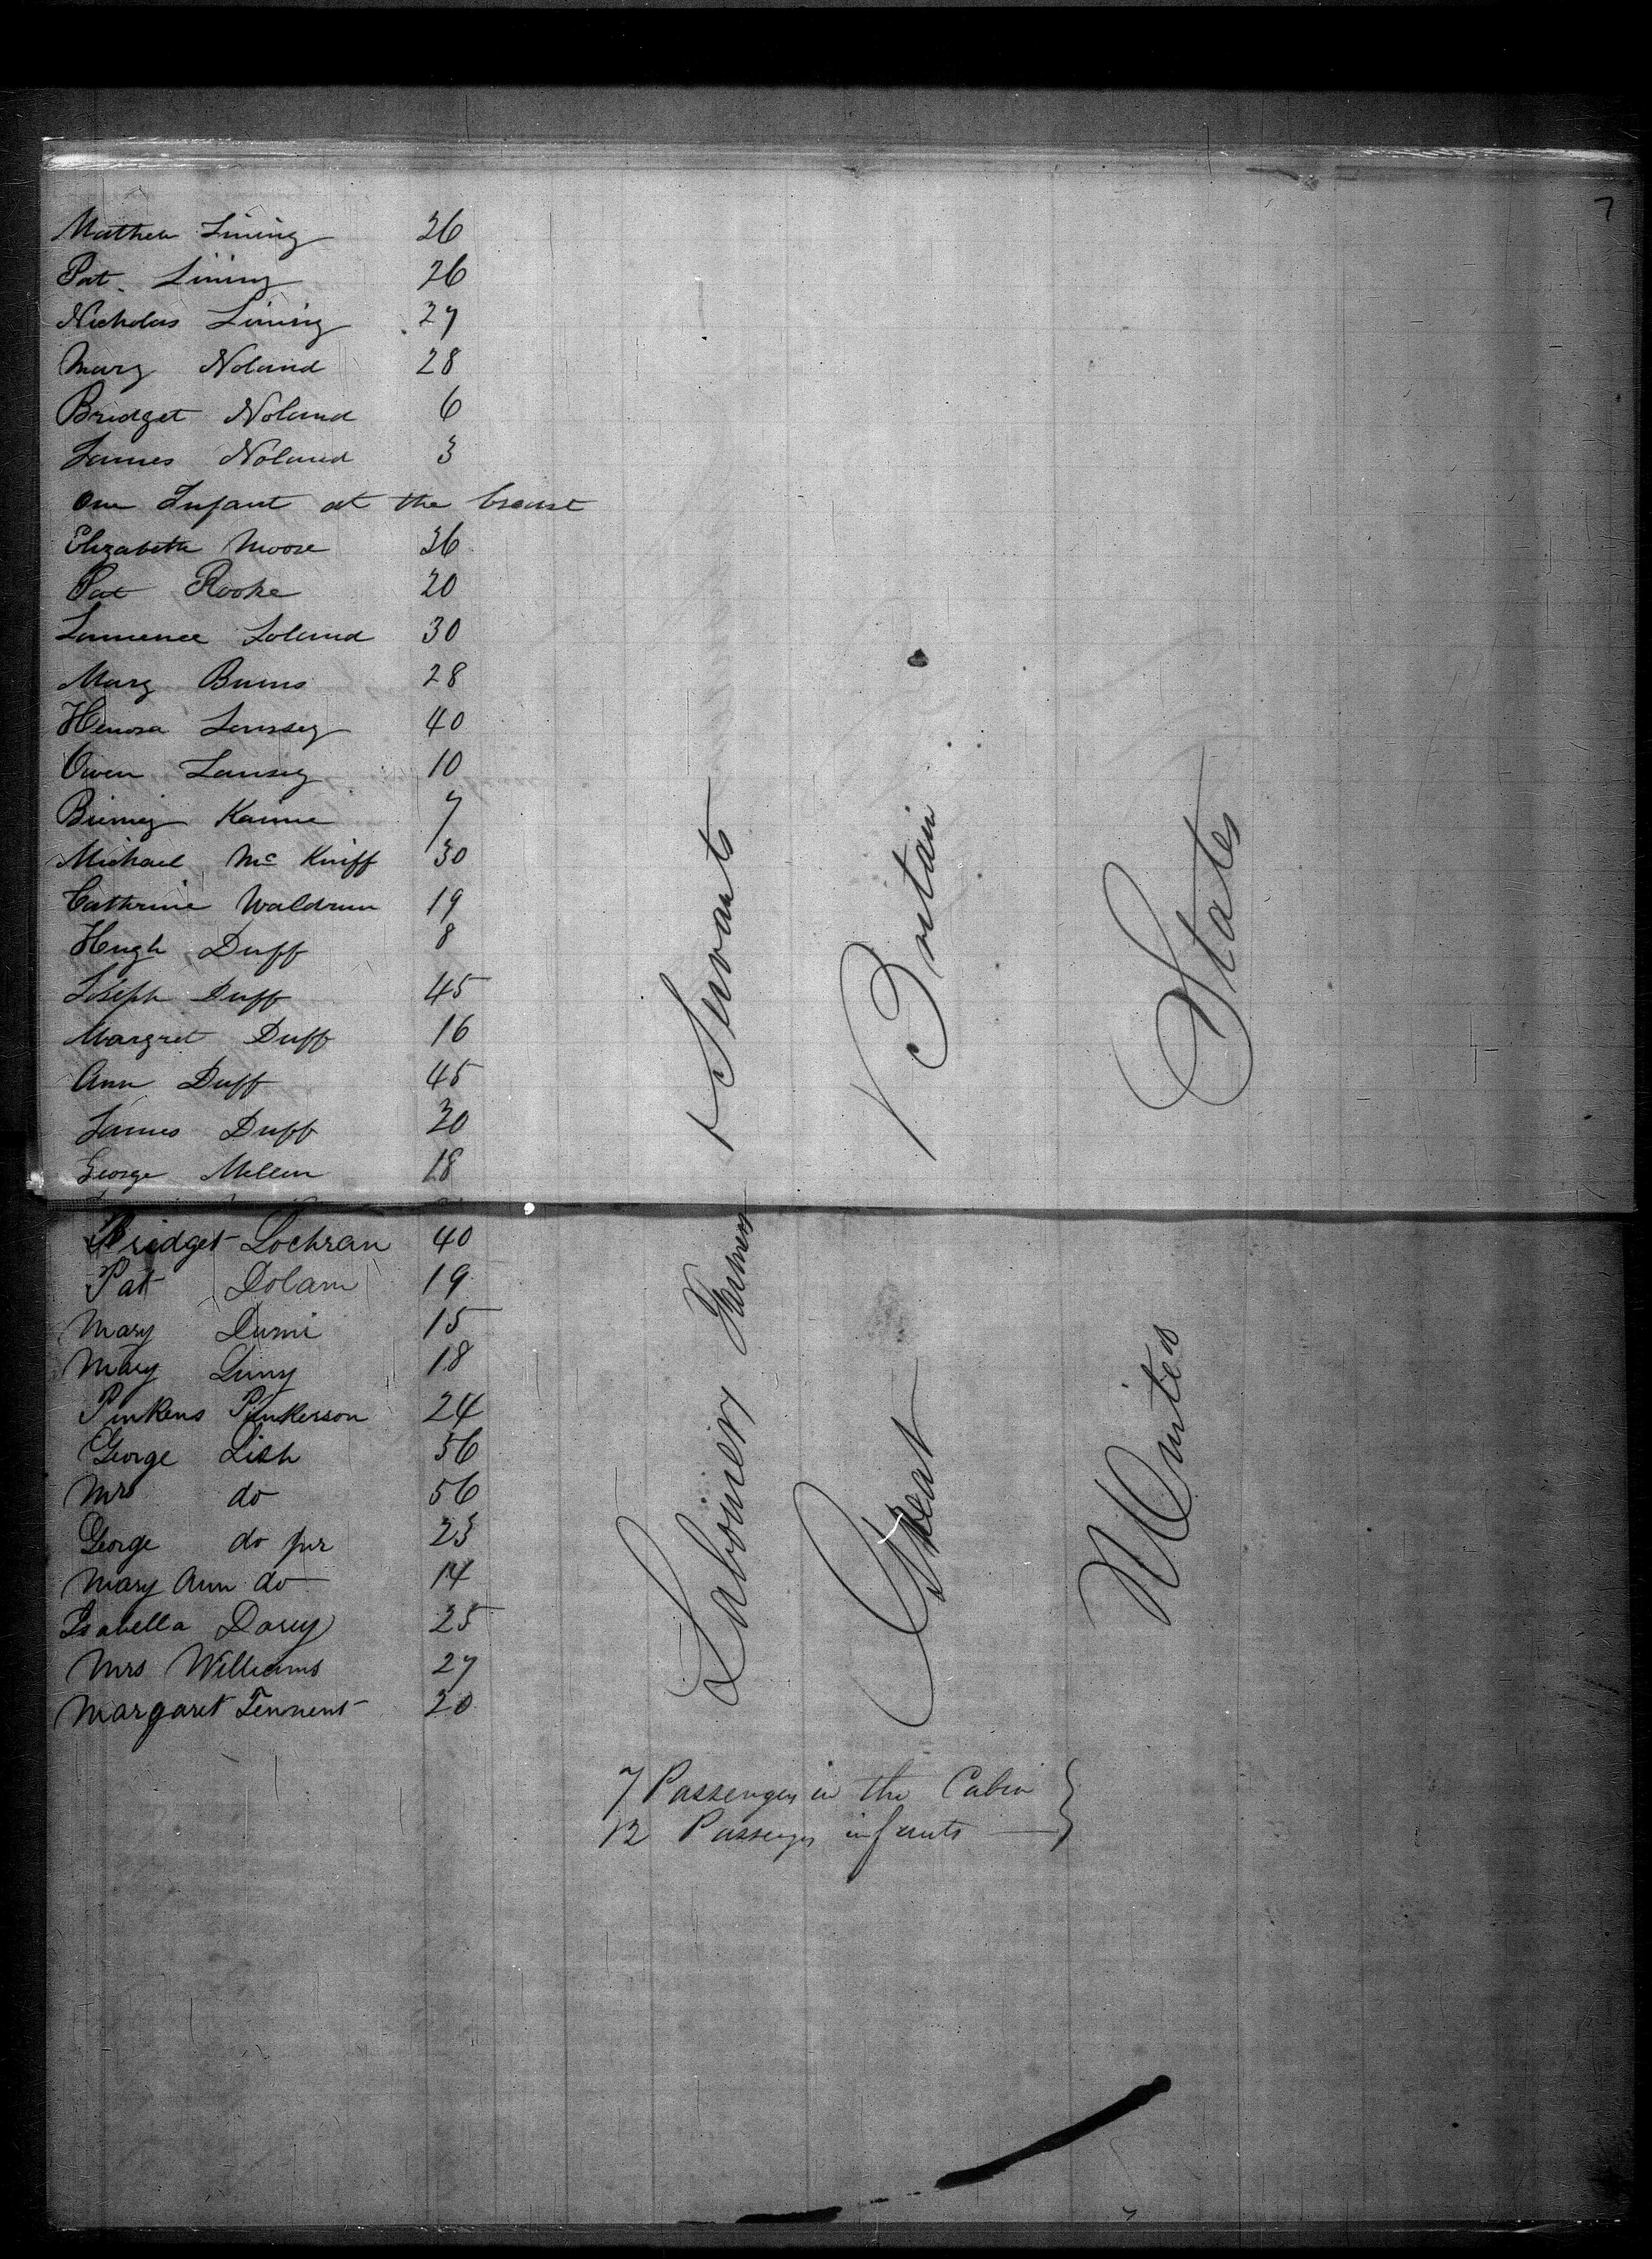 7
Mathew Lining 26
Pat. Lining 26
Nicholas Lining 27
Mary Noland 28
Bridget Noland 6
James Noland 3
One Infant at the breast
Elizabeth Moore 36
Pat Rooke 20
Laurence Loland 30
Mary Burns 28
Henora Lansey 40
Owen Lansey 10
Kanne 7
Michael Mc Kniff 30
Cathrine Waldrun 19
Hugh Duff 8
Joseph Duff 45
Margret Duff 16
Ann Duff 45
James Duff 20
George Mellen 18
Bridget Lochran 40
Pat Dolam 19
Mary Dumi 15
Mary Luny 18
Pinkens Pinkerson 24
George Lish 56
Mrs do 56
George do jnr 23
Mary Ann do 14
Isabella Darcy 25
Mrs Williams 27
Margaret Tennent 20
Labouiers Farmers & Servants
Great Britain
United States
7 Passengers in the Cabin
12 Passengers infants